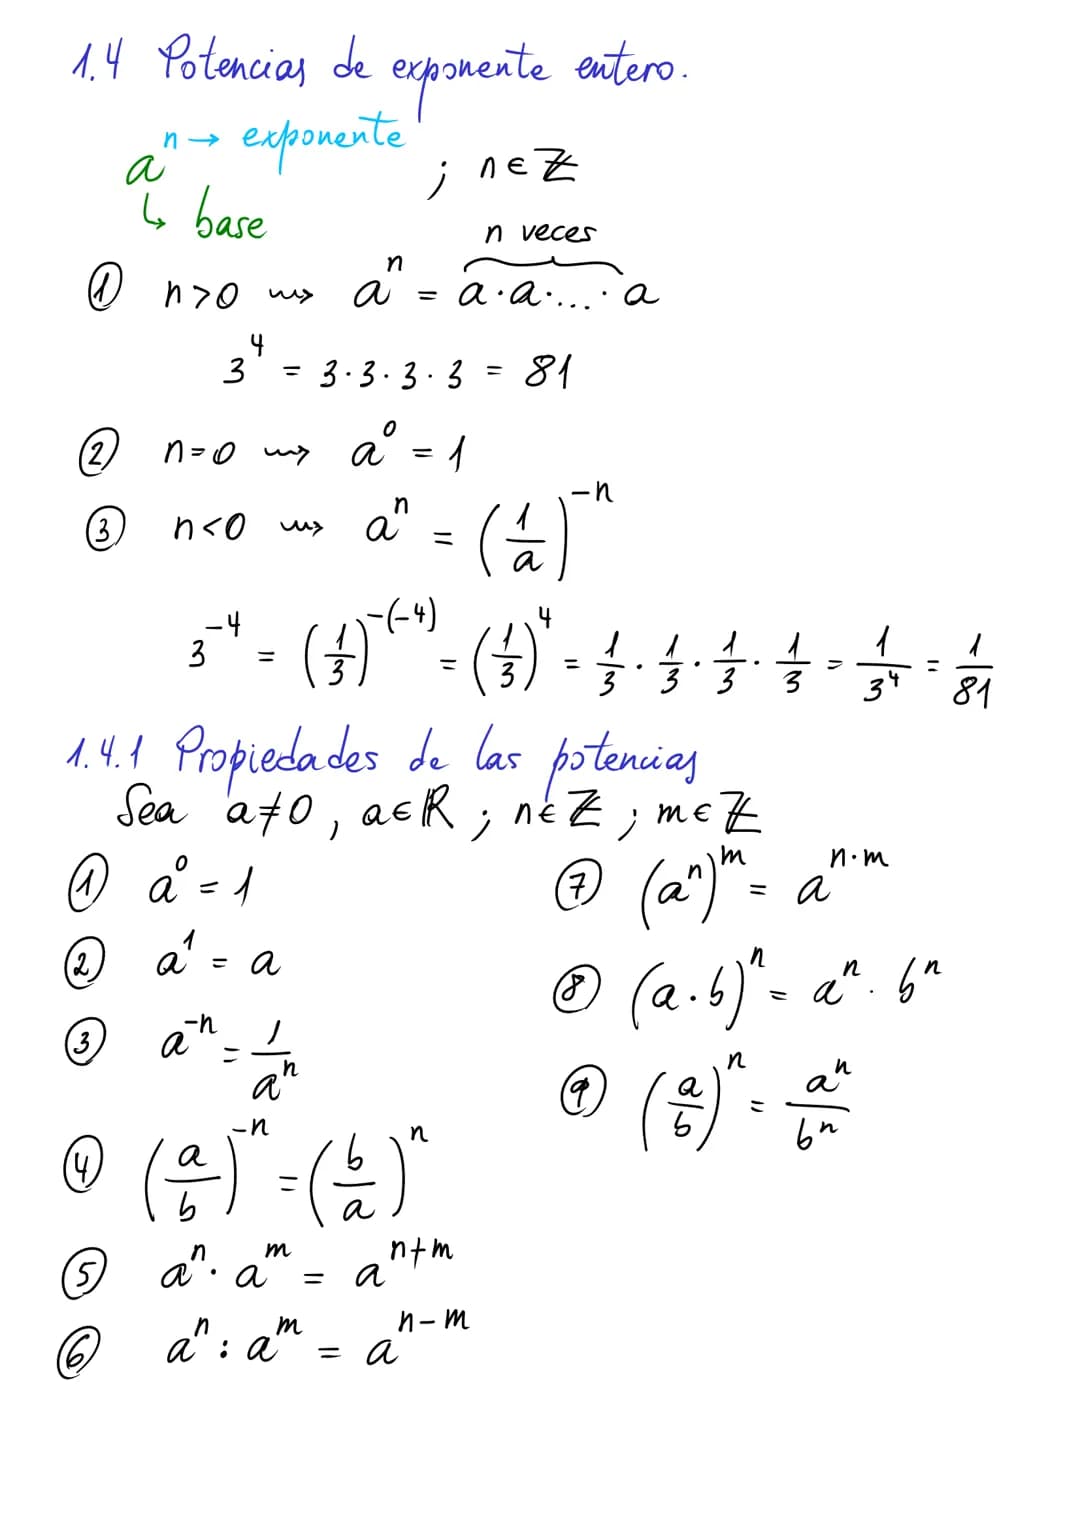 1.4 Potencias de exponente entero.
aⁿ → exponente ; n∈ℤ
↳ base
n veces
① n>0 ⇝ aⁿ = a·a·...·a
3⁴ = 3·3·3·3 = 81
② n=0 ⇝ a⁰ = 1
③ n<0 ⇝ aⁿ = (1/a)⁻ⁿ
3⁻⁴ = (1/3)⁻⁽⁻⁴⁾ = (1/3)⁴ = 1/3 · 1/3 · 1/3 · 1/3 = 1/3⁴ = 1/81
1.4.1 Propiedades de las potencias
Sea a≠0, a∈ℝ ; n∈ℤ ; m∈ℤ
① a⁰ = 1
② a¹ = a
③ a⁻ⁿ = 1/aⁿ
④ (a/b)⁻ⁿ = (b/a)ⁿ
⑤ aⁿ · aᵐ = aⁿ⁺ᵐ
⑥ aⁿ : aᵐ = aⁿ⁻ᵐ
⑦ (aⁿ)ᵐ = aⁿ˙ᵐ
⑧ (a·b)ⁿ = aⁿ · bⁿ
⑨ (a/b)ⁿ = aⁿ/bⁿ